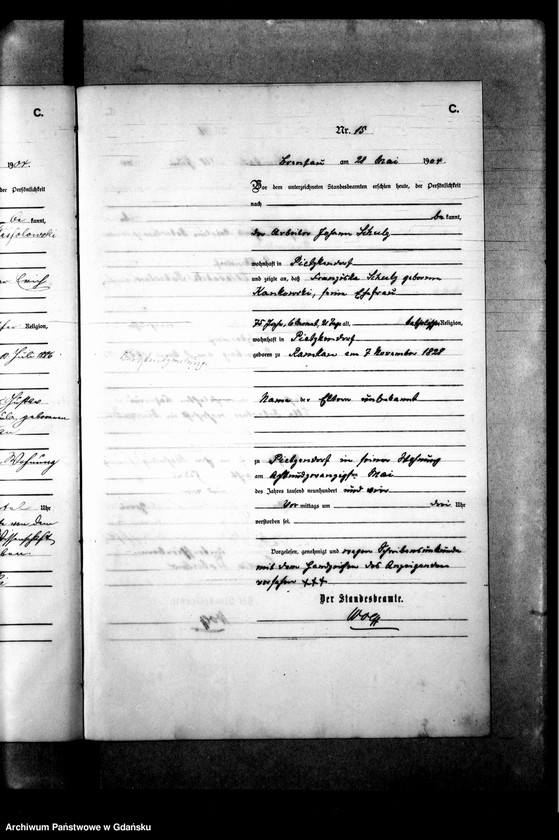 C.
1904.
der Persönlichkeit
kannt,
Religion,
10 Juli 1886
geborenen
Wohnung
Uhr
C.
Nr. 15
am 28 Mai 1904.
Vor dem unterzeichneten Standesbeamten erschien heute, der Persönlichkeit
nach
be kannt,
der Arbeiter Johann Schulz
wohnhaft in Pietzkendorf
und zeigte an, daß Franziska Schulz geborene
Kankowski, seine Ehefrau
75 Jahr, 6 Monat, 21 Tage alt, katholischer Religion,
wohnhaft in Pietzkendorf
geboren zu Ramkau am 7 November 1828
Name der Eltern unbekannt
zu Pietzkendorf in seiner Wohnung
am Achtundzwanzigsten Mai
des Jahres tausend neunhundert und vier
Vor mittags um drei Uhr
verstorben sei.
Vorgelesen, genehmigt und wegen Schreibensunkunde
mit dem Handzeichen des Anzeigenden
versehen +++
Der Standesbeamte.
Archiwum Państwowe w Gdańsku